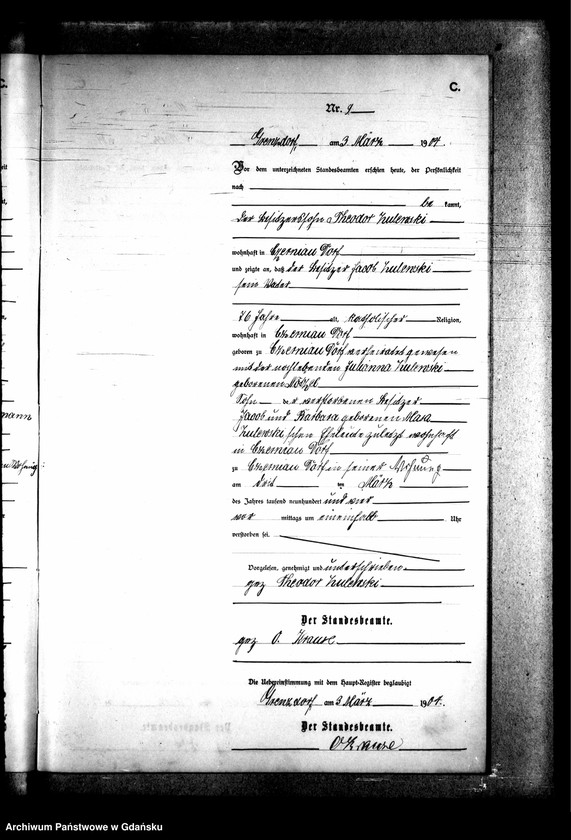 C.
Nr. 9
Grenzdorf, am 3 März 1904
Vor dem unterzeichneten Standesbeamten erschien heute, der Persönlichkeit
nach
be kannt,
der Besitzerssohn Theodor Zulewski
wohnhaft in Czerniau Dorf
und zeigte an, daß der Besitzer Jacob Zulewski
sein Vater
76 Jahre alt, katholischer Religion,
wohnhaft in Czerniau Dorf
geboren zu Czerniau Dorf verheiratet gewesen
mit der nochlebenden Julianna Zulewski
geborenen
Sohn der verstorbenen Besitzer
Jacob und Barbara geborenen Mara
Zulewski'schen Eheleute zuletzt wohnhaft
in Czerniau Dorf
zu Czerniau Dorf in seiner Wohnung
am drei ten März
des Jahres tausend neunhundert und vier
vor mittags um eineinhalb Uhr
verstorben sei.
Vorgelesen, genehmigt und unterschrieben
gez Theodor Zulewski
Der Standesbeamte.
gez O. Krause
Die Uebereinstimmung mit dem Haupt-Register beglaubigt
Grenzdorf am 3 März 1904.
Der Standesbeamte.
O Krause
Archiwum Państwowe w Gdańsku